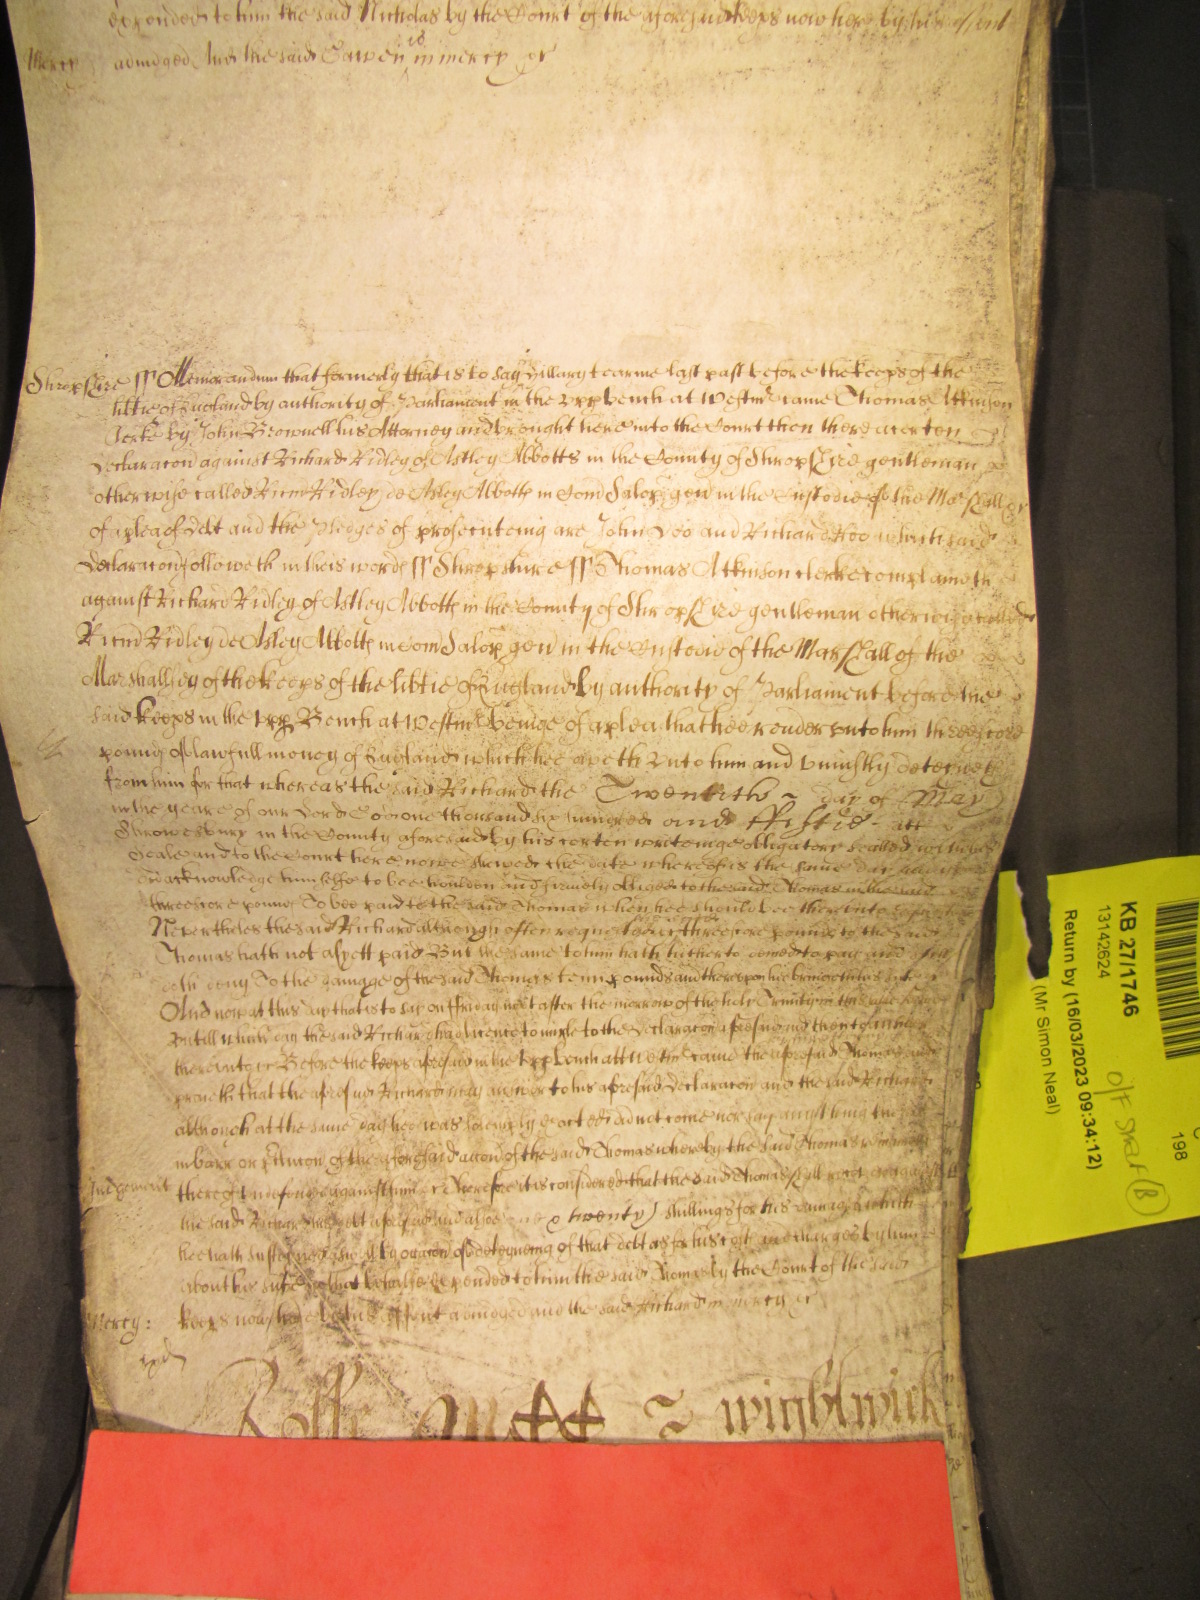 to him the said Nicholas by the Court of the aforesaid keeps now here by his assent
Mercy adiudged And the said Gawen is in mercy &c
Shropshire ss Memorandum that formerly that is to say Hillary tearme last past before the keeps of the
libtie of England by authority of Parliament in the vpp bench at Westmr came Thomas Atkinson
Clerke by John Brownell his Attorney and brought here into the Court then there a certen
Declaracon against Richard Ridley of Astley Abbotts in the County of Shropshire gentleman
otherwise called Ricm Ridley de Astley Abbotts in Com Salop gen in the Custodie of the Marshall &c
of a plea of debt and the pledges of prosecuteing are John Doo and Richard Roo which said
Declaracon followeth in theis words ss Shropshire ss Thomas Atkinson clerke complaineth
against Richard Ridley of Astley Abbotts in the County of Shropshire gentleman otherwise called
Ricm Ridley de Astley Abbotts in Com Salop gen in the Custodie of the Marshall of the
Marshallsey of the keeps of the libtie of England by authority of Parliament before the
said keeps in the vpp Bench at Westmr beinge of a plea that hee render vnto him threescore
pounds of lawfull money of England which hee oweth vnto him and vniustly deteyneth
from him for that whereas the said Richard the Twentith day of May
in the yeare of our Lord God one thousand six hundred and ffiftie att
Shrowesbury in the County aforesaid by his certen writeinge obligatory sealed with his
Seale and to the Court here nowe shewed the date whereof is the same day and yeare
did acknowledge himselfe to bee houlden and firmely obliged to the said Thomas in the said
threescore pounds To bee paid to the said Thomas when hee should bee therevnto
Neverthles the said Richard although often requested the threescore pounds to the said
Thomas hath not as yett paid But the same to him hath hitherto denied to pay and still
doth deny To the damage of the said Thomas tenn pounds and therevpon hee bringeth his suite
And now at this day that is to say on ffriday next after the morrow of the holy Trinity in this same
vntill which day the said Richard had licence to imple to the Declaracon aforesaid and then to answere
&c Before the keeps aforesaid in the vpp bench att Westmr came the aforesaid Thomas
prayeth that the aforesaid Richard may answer to his aforesaid Declaracon and the said Richard
although at the same day hee was solemply exacted did not come nor say any thing
in barr or of the aforesaid accon of the said Thomas whereby the said Thomas remaineth
Iudgement thereof vndefended against him &c Therefore it is considered that the said Thomas shall recover against
the said Richard his debt aforesaid and alsoe one & twenty shillings for his damages which
hee hath susteyned aswell by occacon of deteyneing of that debt as for his costs and charges by him
about his suite in that behalfe expended to him the said Thomas by the Court of the said
Mercy: keeps now here by his assent adiudged and the said Richard in mercy &c
Rolle Wightwick
KB 27/1746
13142624
Return by (16/03/2023 09:34:12)
(Mr Simon Neal)
198